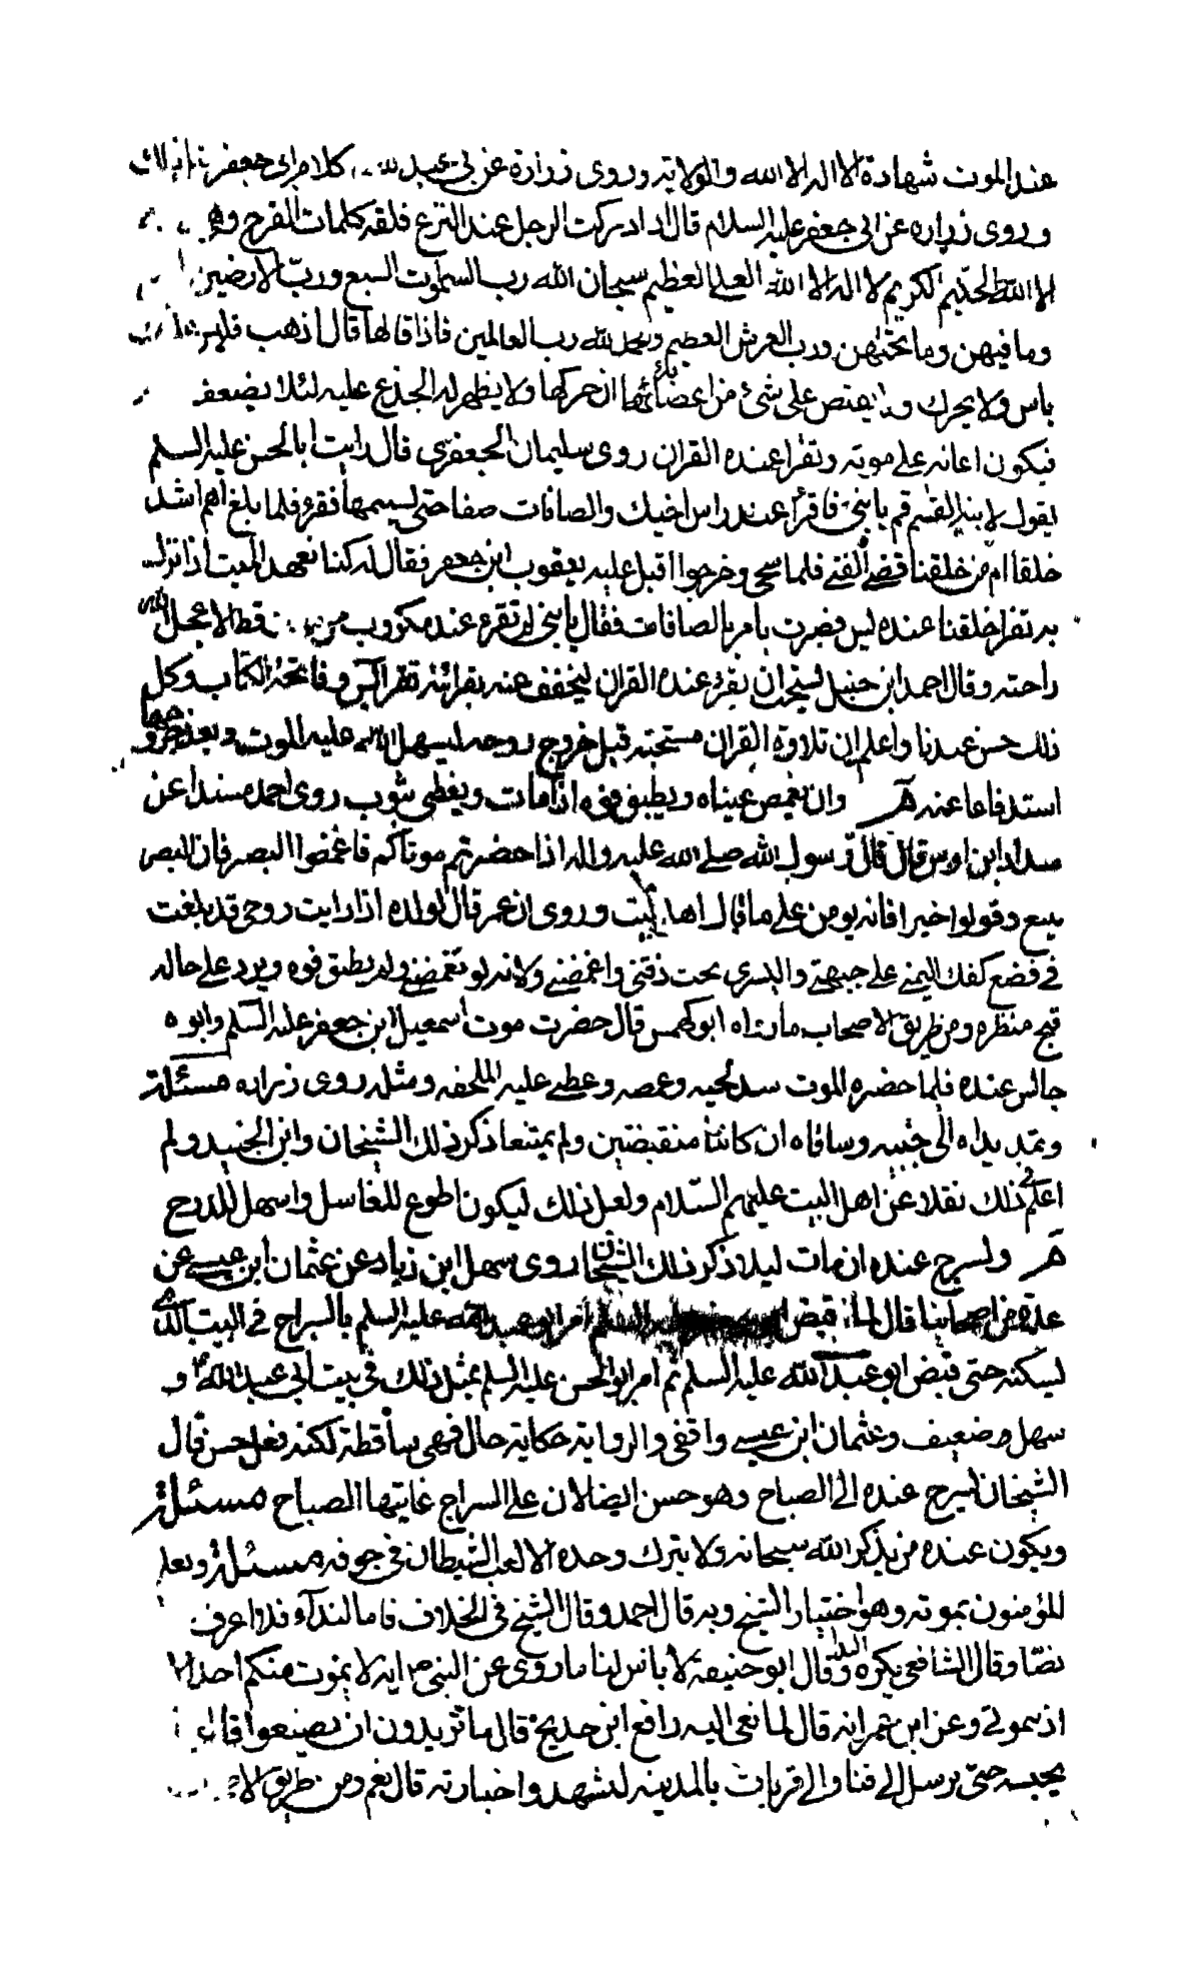 عند الموت شهادة الا اله الا الله والولاية وروى زرارة عن ابي عبد الله كلام ابي جعفر
وروى زراره عن ابي جعفر عليه السلام قال اذا دركت الرجل عند النزع فلقنه كلمات الفرج
الا الله الحليم الكريم لا اله الا الله العلي العظيم سبحان الله رب السموت السبع ورب الارضين
وما فيهن وما تحتهن ورب العرش العظيم والحمد لله رب العالمين فاذا قالها قال اذهب فليس
باس ولا يحرك ولا يقبض على شئ من اعضائه ان حركها ولا يظهر له الجزع عليه لئلا يضعف
فيكون اعانه على موته وتقرا عنده القران روى سليمان الجعفري قال رايت ابا الحسن عليه السلم
يقول لابنه القسم قم يا بني فاقرا عند راس اخيك والصافات صفا حتى تستتمها فقرء فلما بلغ اهم اشد
خلقا ام من خلقنا قضى الفتى فلما سجي وخرجوا اقبل عليه يعقوب ابن جعفر فقال له كنا نعهد الميت اذا نزل
به تقرا عنده يس فصرت تامر بالصافات فقال يا بني لم تقرء عند مكروب من قط الا عجل الله
راحته وقال احمد ابن حنبل يستحب ان يقرء عنده القران ليخفف عنه بقرائته تقرا يس وفاتحة الكتاب وكل
ذلك حسن عندنا واعلم ان تلاوة القران مستحبة قبل خروج روحه ليسهل الله عليه الموت وبعد خروجها
استدفاعا عنه وان تغمض عيناه ويطبق فوه اذا مات ويغطى بثوب روى احمد مسندا عن
شداد ابن اوس قال قال رسول الله صلى الله عليه واله اذا حضرتم موتاكم فاغمضوا البصر فان البصر
يتبع وقولوا خيرا فانه يومن على ما قال اهل الميت وروى ان عمر قال لولده اذا رايت روحي قد بلغت
في فضع كفك اليمنى على جبهتي واليسرى تحت ذقني واغمضني ولانه لو لم تغمض ولم يطبق فوه ويرد على حاله
قبح منظره ومن طريق الاصحاب ما رواه ابو كهمس قال حضرت موت اسمعيل ابن جعفر عليه السلم وابوه
جالس عنده فلما حضره الموت شد لحييه وغمضه وغطى عليه الملحفه ومثله روى زراره مسئلة
وتمد يداه الى جنبيه وساقاه ان كانتا منقبضتين ولم يمتنعا ذكر ذلك الشيخان وابن الجنيد ولم
اعلم في ذلك نقلا عن اهل البيت عليهم السلام ولعل ذلك ليكون اطوع للغاسل واسهل للدرج
ويسرج عنده ان مات ليلا ذكر ذلك الشيخان روى سهل ابن زياد عن عثمان ابن عيسى عن
عدة من اصحابنا قال لما قبض امر ابو عبد الله عليه السلم بالسراج في البيت الذي
يسكنه حتى قبض ابو عبد الله عليه السلم ثم امر ابو الحسن عليه السلم بمثل ذلك في بيت ابي عبد الله و
سهل ضعيف وعثمان ابن عيسى واقفي والرواية حكاية حال فهي ساقطة لكنه فعل حسن قال
الشيخان يسرج عنده الى الصباح وهو حسن ايضا لان علي السراج غايتها الصباح مسئلة
ويكون عنده من يذكر الله سبحانه ولا يترك وحده الا لعب الشيطان في جوفه مسئلة ويعلم
المؤمنون بموته وهو اختيار الشيخ وبه قال احمد وقال الشيخ في الخلاف فاما لندآء فلا اعرف
نصا وقال الشافعي يكره الندا وقال ابو حنيفة لا باس لنا ما روى عن النبي انه لا يموت منكم احد الا
اذنتموني وعن ابن عمر انه قال لما نعي اليه رافع ابن خديج قال ما تريدون ان تصنعوا قال
يحبسه حتى يرسل الى قبا والى قربات بالمدينه لتشهد واخبارته قال نعم ومن طريق